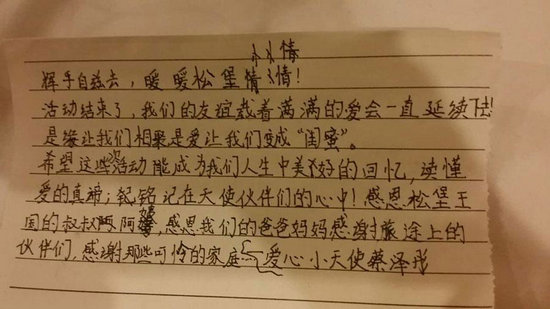 小小情
辉手自兹去，暖暖松堡情情！
活动结束了，我们的友谊载着满满的爱会一直延续下去！
是缘让我们相聚是爱让我们变成“闺蜜”。
希望这些活动能成为我们人生中美好的回忆，读懂
爱的真谛；铭记在天使伙伴们的心中！感恩松堡王
国的叔叔阿姨，感恩我们的爸爸妈妈感谢旅途上的
伙伴们，感谢那些可怜的家庭 爱心小天使蔡泽彤